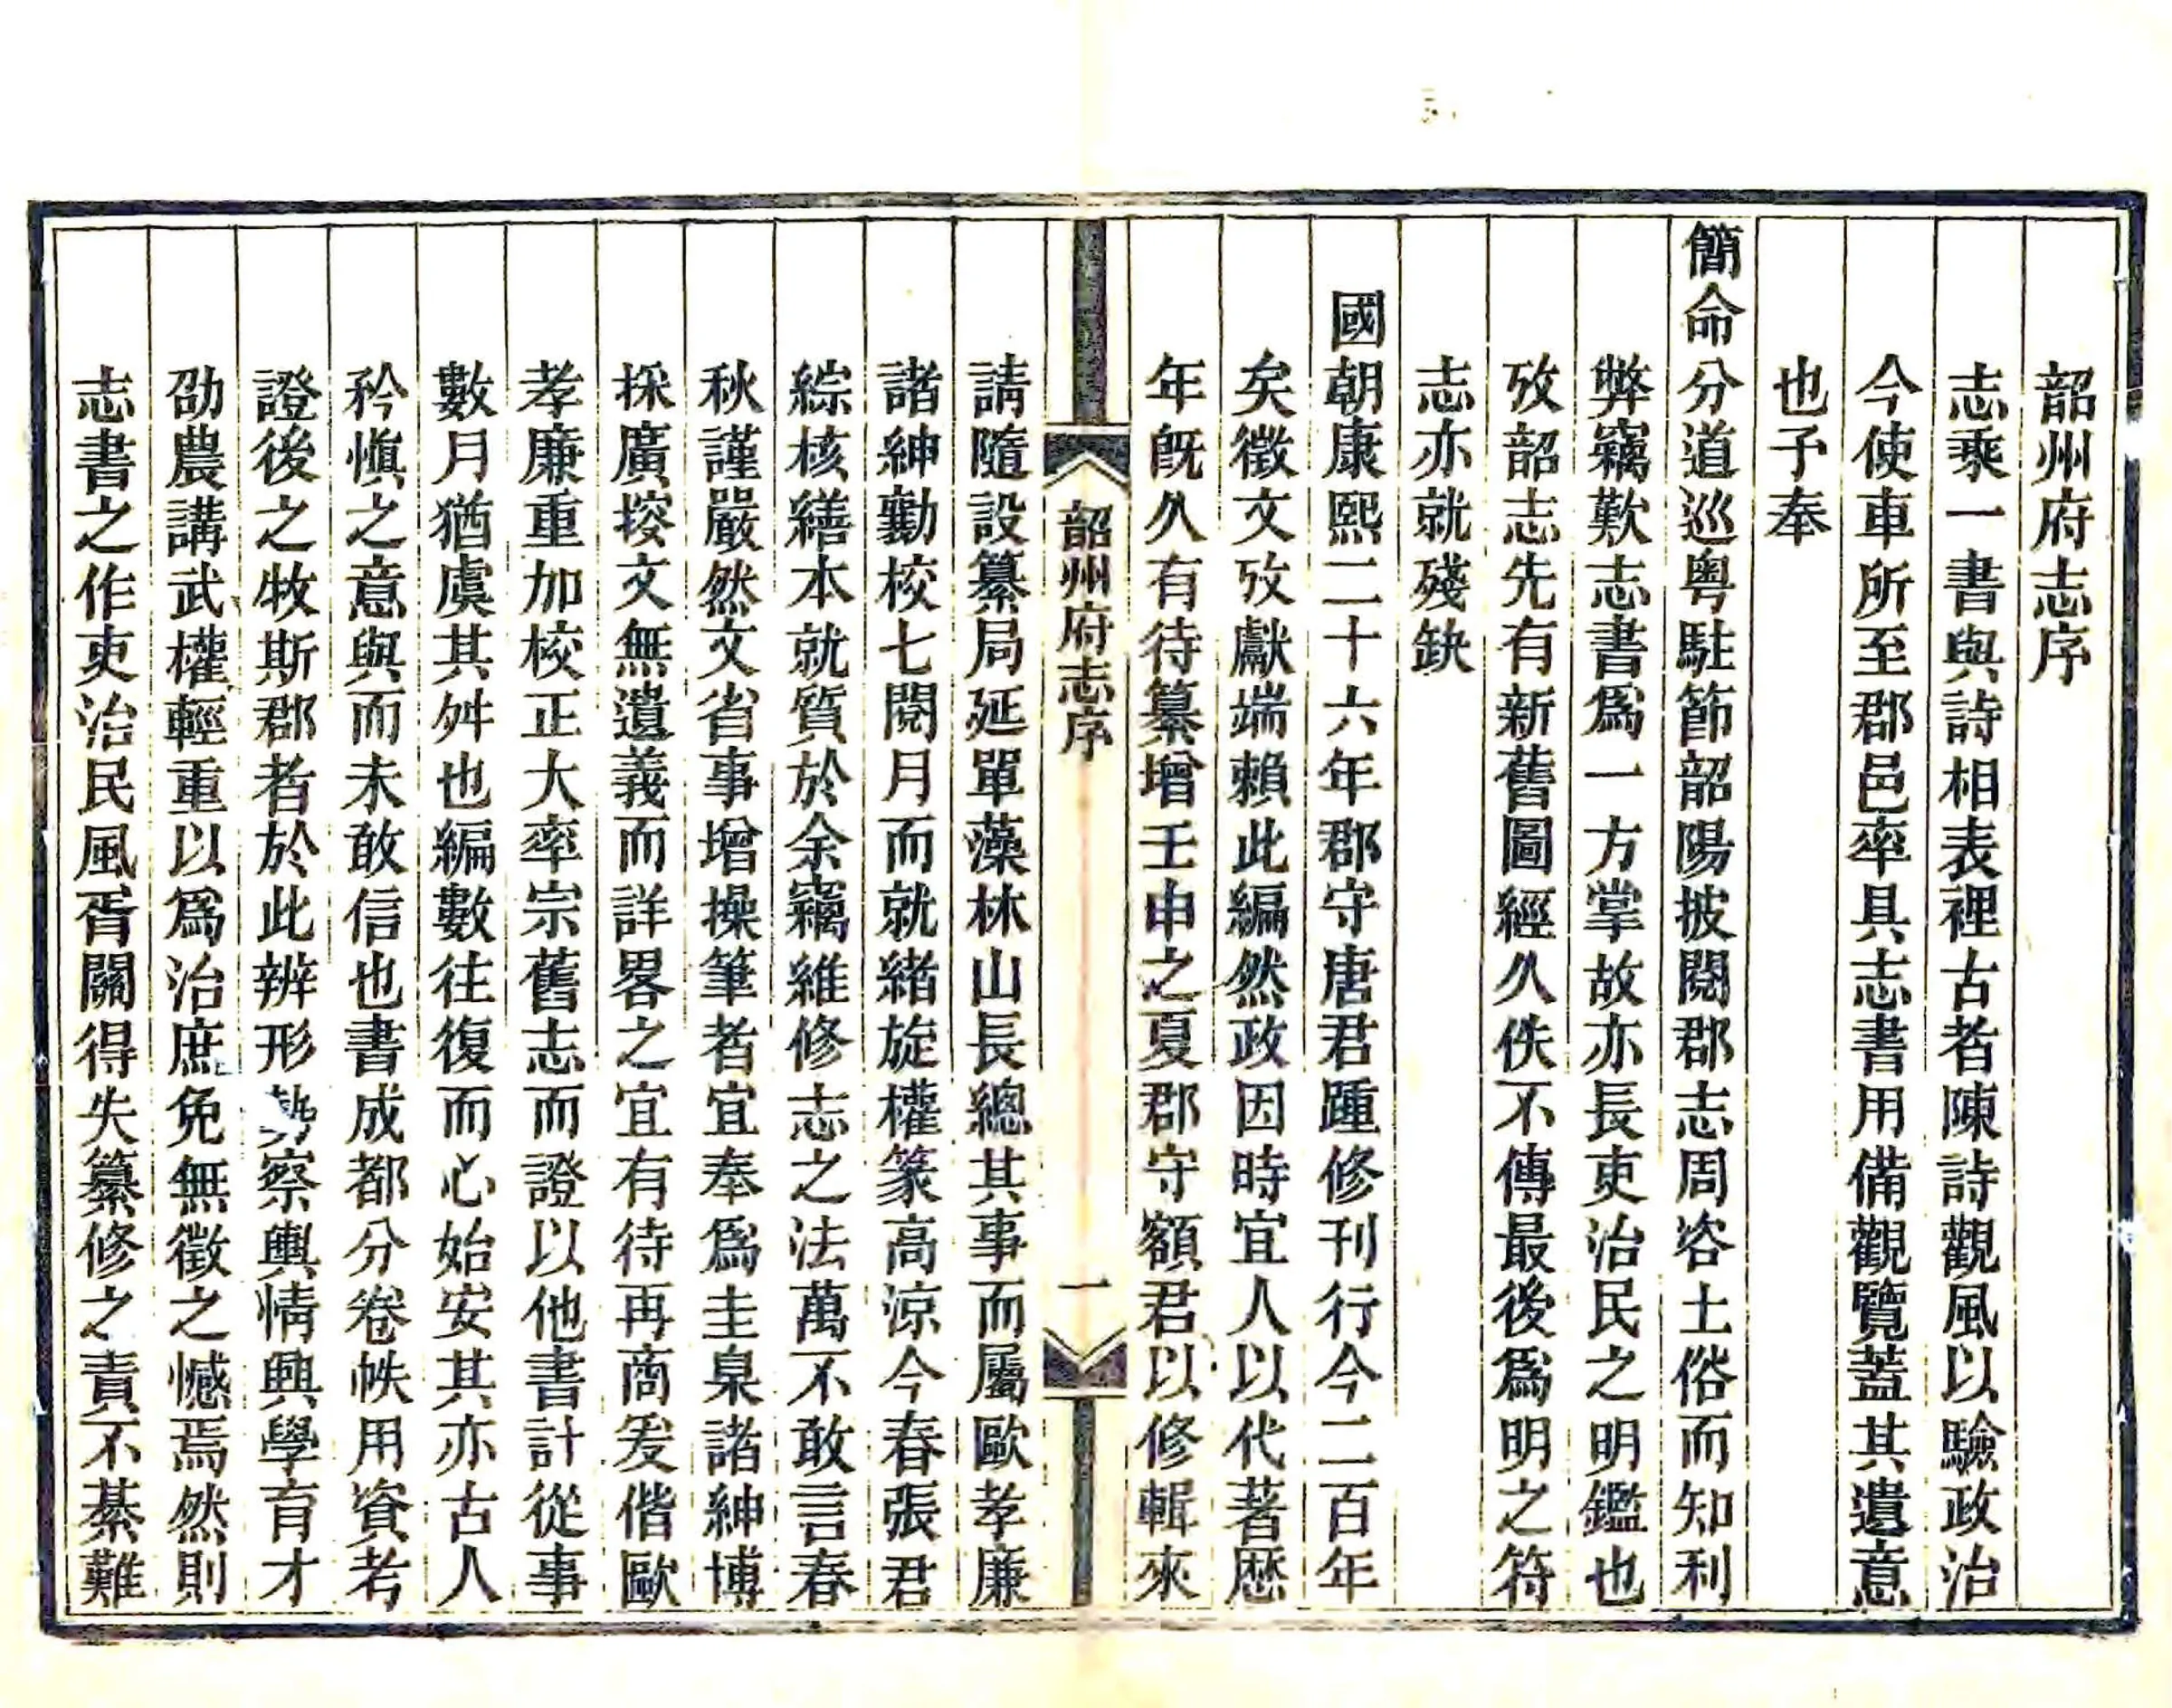 韶州府志序
志乘一書與詩相表裡古者陳詩觀風以驗政治
今使車所至郡邑率具志書用備觀覽蓋其遺意
也予奉
簡命分道巡粤駐節韶陽披閱郡志周咨土俗而知利
弊竊歎志書爲一方掌故亦長吏治民之明鑑也
攷韶志先有新舊圖經久佚不傳最後爲明之符
志亦就殘缺
國朝康熙二十六年郡守唐君踵修刊行今二百年
矣徵文攷獻端賴此編然政因時宜人以代著歴
年旣久有待纂增壬申之夏郡守額君以修輯來
韶州府志序
一
請隨設纂局延單藻林山長總其事而屬歐孝廉
諸紳勷校七閱月而就緒旋權篆高涼今春張君
綜核繕本就質於余竊維修志之法萬不敢言春
秋謹嚴然文省事增操筆者宜奉爲圭臬諸紳博
採廣搜文無遺義而詳畧之宜有待再商爰偕歐
孝廉重加校正大率宗舊志而證以他書計從事
數月猶虞其舛也編數往復而心始安其亦古人
矜愼之意與而未敢信也書成都分卷帙用資考
證後之牧斯郡者於此辨形勢察輿情興學育才
劭農講武權輕重以爲治庶免無徵之憾焉然則
志書之作吏治民風胥關得失纂修之責不綦難